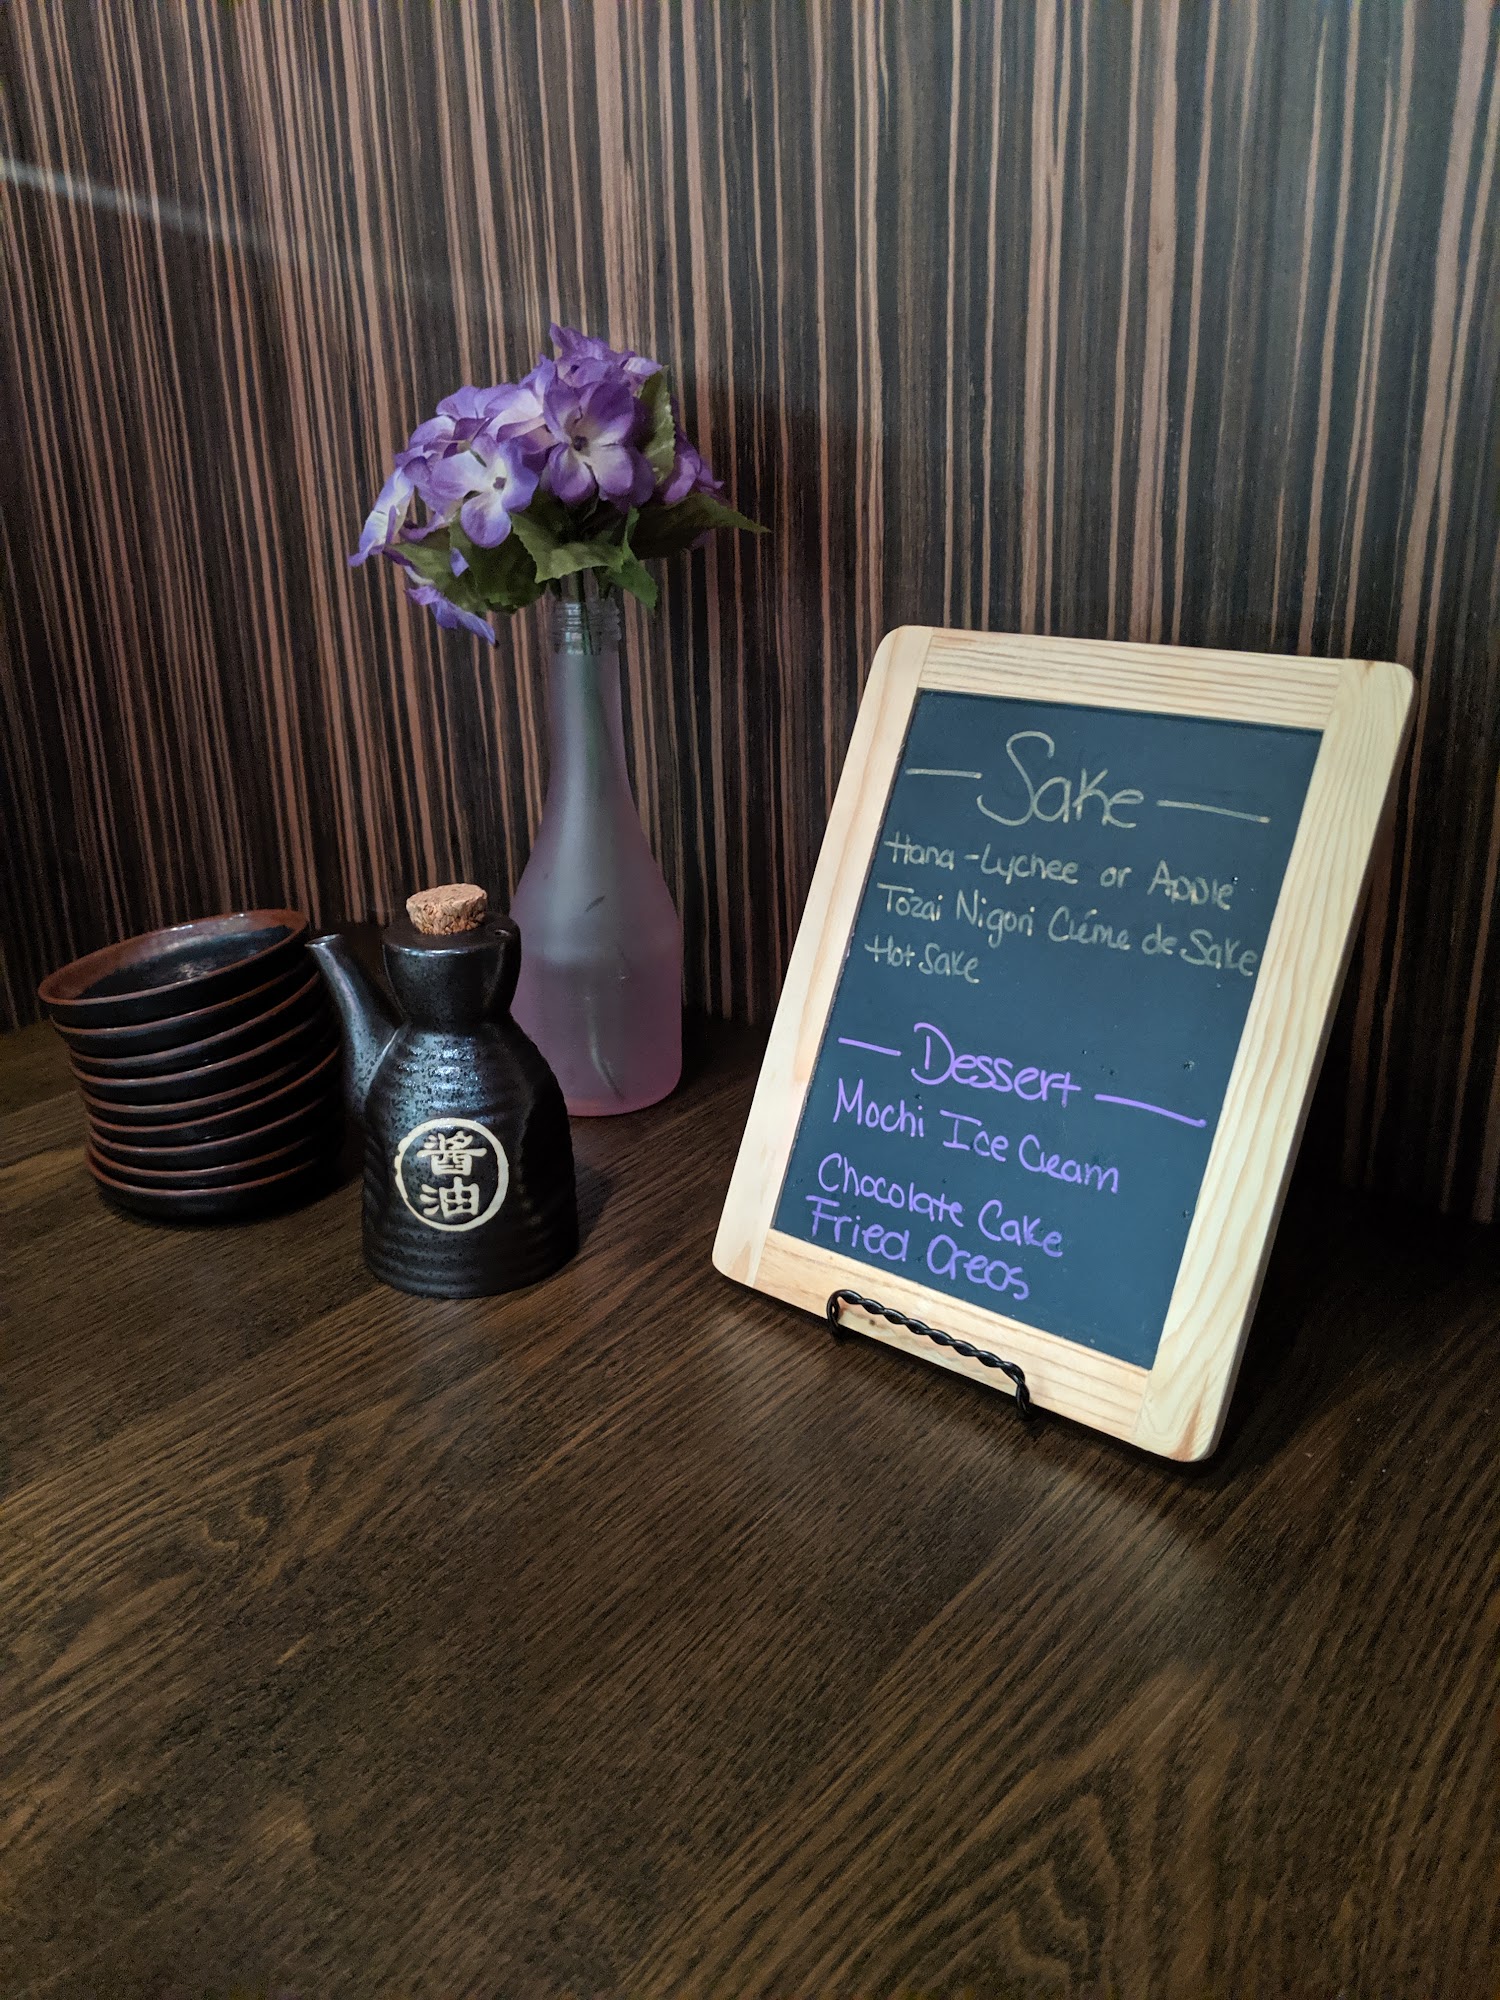 醤
油
Sake
Hana - Lychee or Apple
Tozai Nigori Créme de Sake
Hot Sake
Dessert
Mochi Ice Cream
Chocolate Cake
Fried Oreos